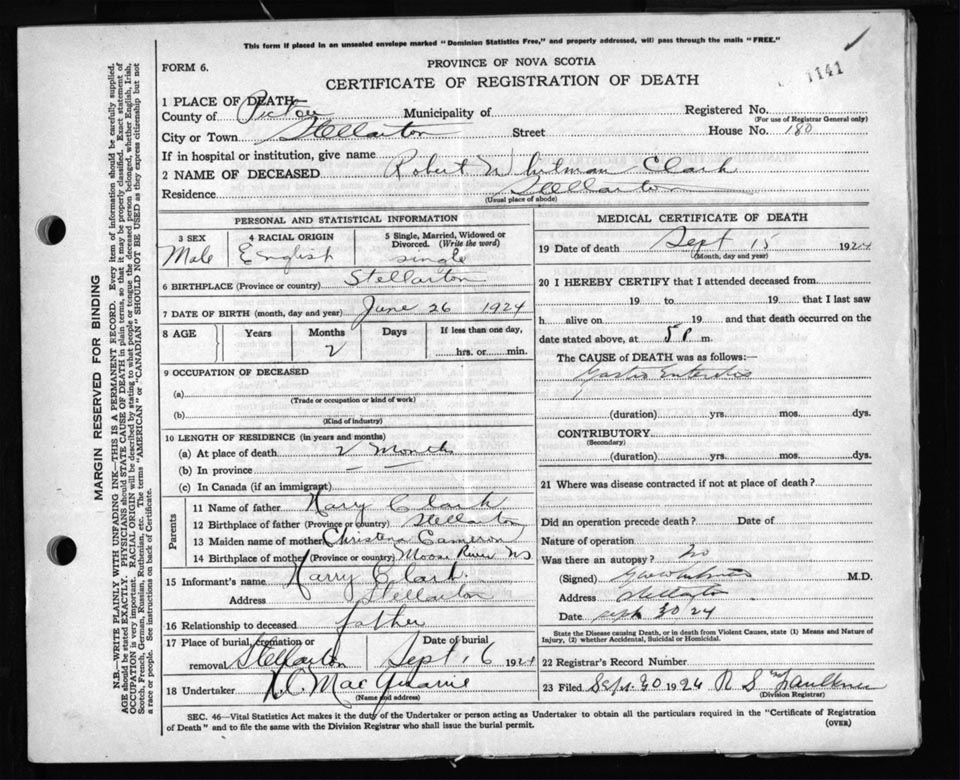 This form if placed in an unsealed envelope marked "Dominion Statistics Free," and properly addressed, will pass through the mails "FREE."
FORM 6.
PROVINCE OF NOVA SCOTIA
CERTIFICATE OF REGISTRATION OF DEATH
1141
1 PLACE OF DEATH
County of Pictou Municipality of Registered No.
(For use of Registrar General only)
City or Town Stellarton Street House No. 180
If in hospital or institution, give name
2 NAME OF DECEASED Robert Whitman Clark
Residence Stellarton
(Usual place of abode)
PERSONAL AND STATISTICAL INFORMATION
3 SEX
Male
4 RACIAL ORIGIN
English
5 Single, Married, Widowed or Divorced. (Write the word)
single
6 BIRTHPLACE (Province or country) Stellarton
7 DATE OF BIRTH (month, day and year) June 26 1924
8 AGE Years Months Days If less than one day,
2 hrs. or min.
9 OCCUPATION OF DECEASED
(a)
(Trade or occupation or kind of work)
(b)
(Kind of industry)
10 LENGTH OF RESIDENCE (in years and months)
(a) At place of death 2 Months
(b) In province — —
(c) In Canada (if an immigrant)
Parents
11 Name of father Harry Clark
12 Birthplace of father (Province or country) Stellarton
13 Maiden name of mother Christena Cameron
14 Birthplace of mother (Province or country) Moose River NS
15 Informant's name Harry Clark.
Address Stellarton
16 Relationship to deceased father
17 Place of burial, cremation or removal Stellarton
Date of burial Sept 16 1924
18 Undertaker MacQuarrie
(Name and address)
MEDICAL CERTIFICATE OF DEATH
19 Date of death Sept 15 1924
(Month, day and year)
20 I HEREBY CERTIFY that I attended deceased from
19 to 19 that I last saw
h alive on 19 and that death occurred on the
date stated above, at 5 P m.
The CAUSE of DEATH was as follows:—
Gastro Enteritis
(duration) yrs. mos. dys.
CONTRIBUTORY
(Secondary)
(duration) yrs. mos. dys.
21 Where was disease contracted if not at place of death?
Did an operation precede death? Date of
Nature of operation
Was there an autopsy? No
(Signed) M.D.
Address Stellarton
Date Sept 30 24
State the Disease causing Death, or in death from Violent Causes, state (1) Means and Nature of
Injury, (2) whether Accidental, Suicidal or Homicidal.
22 Registrar's Record Number
23 Filed Sept. 30 1924 R S Faulkner
(Division Registrar)
SEC. 46—Vital Statistics Act makes it the duty of the Undertaker or person acting as Undertaker to obtain all the particulars required in the "Certificate of Registration
of Death" and to file the same with the Division Registrar who shall issue the burial permit.
(OVER)
MARGIN RESERVED FOR BINDING
N.B.—WRITE PLAINLY WITH UNFADING INK—THIS IS A PERMANENT RECORD. Every item of information should be carefully supplied.
AGE should be stated EXACTLY. PHYSICIANS should STATE CAUSE OF DEATH in plain terms, so that it may be properly classified. Exact statement of
OCCUPATION is very important. RACIAL ORIGIN will be described by stating to what people or tongue the deceased person belonged, whether English, Irish,
Scotch, French, German, Russian, Ruthenian, etc. The terms "AMERICAN" or "CANADIAN" SHOULD NOT BE USED as they express citizenship but not
a race or people. See instructions on back of Certificate.